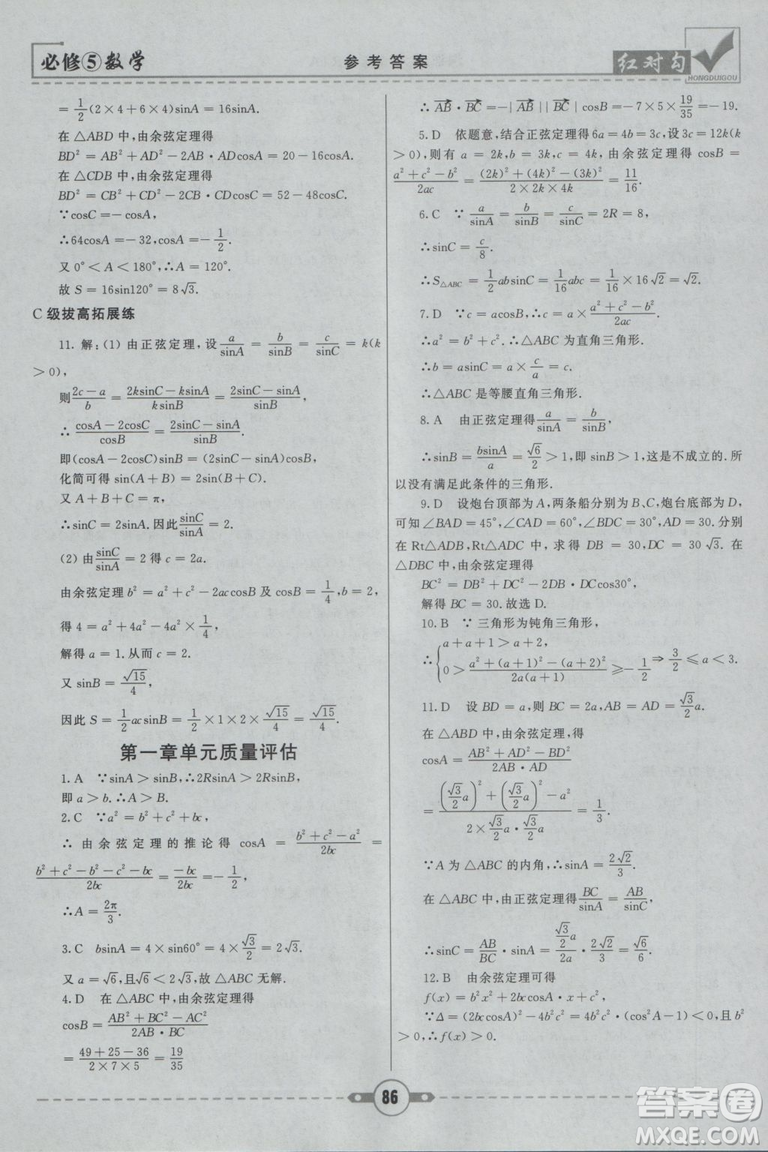 必修⑤数学
参考答案
红对勾
HONGDUIGOU
=1/2(2×4+6×4)sinA=16sinA.
在△ABD中,由余弦定理得
BD²=AB²+AD²-2AB·ADcosA=20-16cosA.
在△CDB中,由余弦定理得
BD²=CB²+CD²-2CB·CDcosC=52-48cosC.
∵cosC=-cosA,
∴64cosA=-32,cosA=-1/2.
又0°<A<180°,∴A=120°.
故S=16sin120°=8√3.
C级拔高拓展练
11.解:(1)由正弦定理,设a/sinA=b/sinB=c/sinC=k(k
>0),
则(2c-a)/b=(2ksinC-ksinA)/(ksinB)=(2sinC-sinA)/sinB.
∴(cosA-2cosC)/cosB=(2sinC-sinA)/sinB.
即(cosA-2cosC)sinB=(2sinC-sinA)cosB.
化简可得sin(A+B)=2sin(B+C).
又A+B+C=π,
∴sinC=2sinA.因此sinC/sinA=2.
(2)由sinC/sinA=2得c=2a.
由余弦定理b²=a²+c²-2accosB及cosB=1/4,b=2,
得4=a²+4a²-4a²×1/4.
解得a=1.从而c=2.
又sinB=√15/4,
因此S=1/2acsinB=1/2×1×2×√15/4=√15/4.
第一章单元质量评估
1.A ∵sinA>sinB,∴2RsinA>2RsinB,
即a>b.∴A>B.
2.C ∵a²=b²+c²+bc,
∴由余弦定理的推论得cosA=(b²+c²-a²)/2bc=
(b²+c²-b²-c²-bc)/2bc=-bc/2bc=-1/2,
∴A=2π/3.
3.C bsinA=4×sin60°=4×√3/2=2√3.
又a=√6,且√6<2√3,故△ABC无解.
4.D 在△ABC中,由余弦定理得
cosB=(AB²+BC²-AC²)/(2AB·BC)
=(49+25-36)/(2×7×5)=19/35
∴AB·BC=-|AB||BC|cosB=-7×5×19/35=-19.
5.D 依题意,结合正弦定理得6a=4b=3c,设3c=12k(k
>0),则有a=2k,b=3k,c=4k,由余弦定理得cosB=
(a²+c²-b²)/2ac=((2k)²+(4k)²-(3k)²)/(2×2k×4k)=11/16.
6.C ∵a/sinA=b/sinB=c/sinC=2R=8,
∴sinC=c/8.
∴S△ABC=1/2absinC=1/16abc=1/16×16√2=√2.
7.D ∵c=acosB,∴c=a×(a²+c²-b²)/2ac.
∴a²=b²+c².∴△ABC为直角三角形.
∴b=asinC=a×c/a=c.
∴△ABC是等腰直角三角形.
8.A 由正弦定理得a/sinA=b/sinB,
∴sinB=bsinA/a=√6/2>1,即sinB>1,这是不成立的.所
以没有满足此条件的三角形.
9.D 设炮台顶部为A,两条船分别为B、C,炮台底部为D,
可知∠BAD=45°,∠CAD=60°,∠BDC=30°,AD=30.分别
在Rt△ADB,Rt△ADC中,求得DB=30,DC=30√3.在
△DBC中,由余弦定理得
BC²=DB²+DC²-2DB·DCcos30°,
解得BC=30.故选D.
10.B ∵三角形为钝角三角形,
∴{a+a+1>a+2,
0>(a²+(a+1)²-(a+2)²)/(2a(a+1))≥-1/2⇒3/2≤a<3.
11.D 设BD=a,则BC=2a,AB=AD=√3/2a.
在△ABD中,由余弦定理得
cosA=(AB²+AD²-BD²)/(2AB·AD)
=((√3/2a)²+(√3/2a)²-a²)/(2×√3/2a·√3/2a)=1/3.
∵A为△ABC的内角,∴sinA=2√2/3.
在△ABC中,由正弦定理得BC/sinA=AB/sinC.
∴sinC=AB/BC·sinA=(√3/2a)/2a·2√2/3=√6/6.
12.B 由余弦定理可得
f(x)=b²x²+2bccosA·x+c²,
∵Δ=(2bccosA)²-4b²c²=4b²c²·(cos²A-1)<0,且b
²>0,∴f(x)>0.
86
答案圈
MXQE.COM